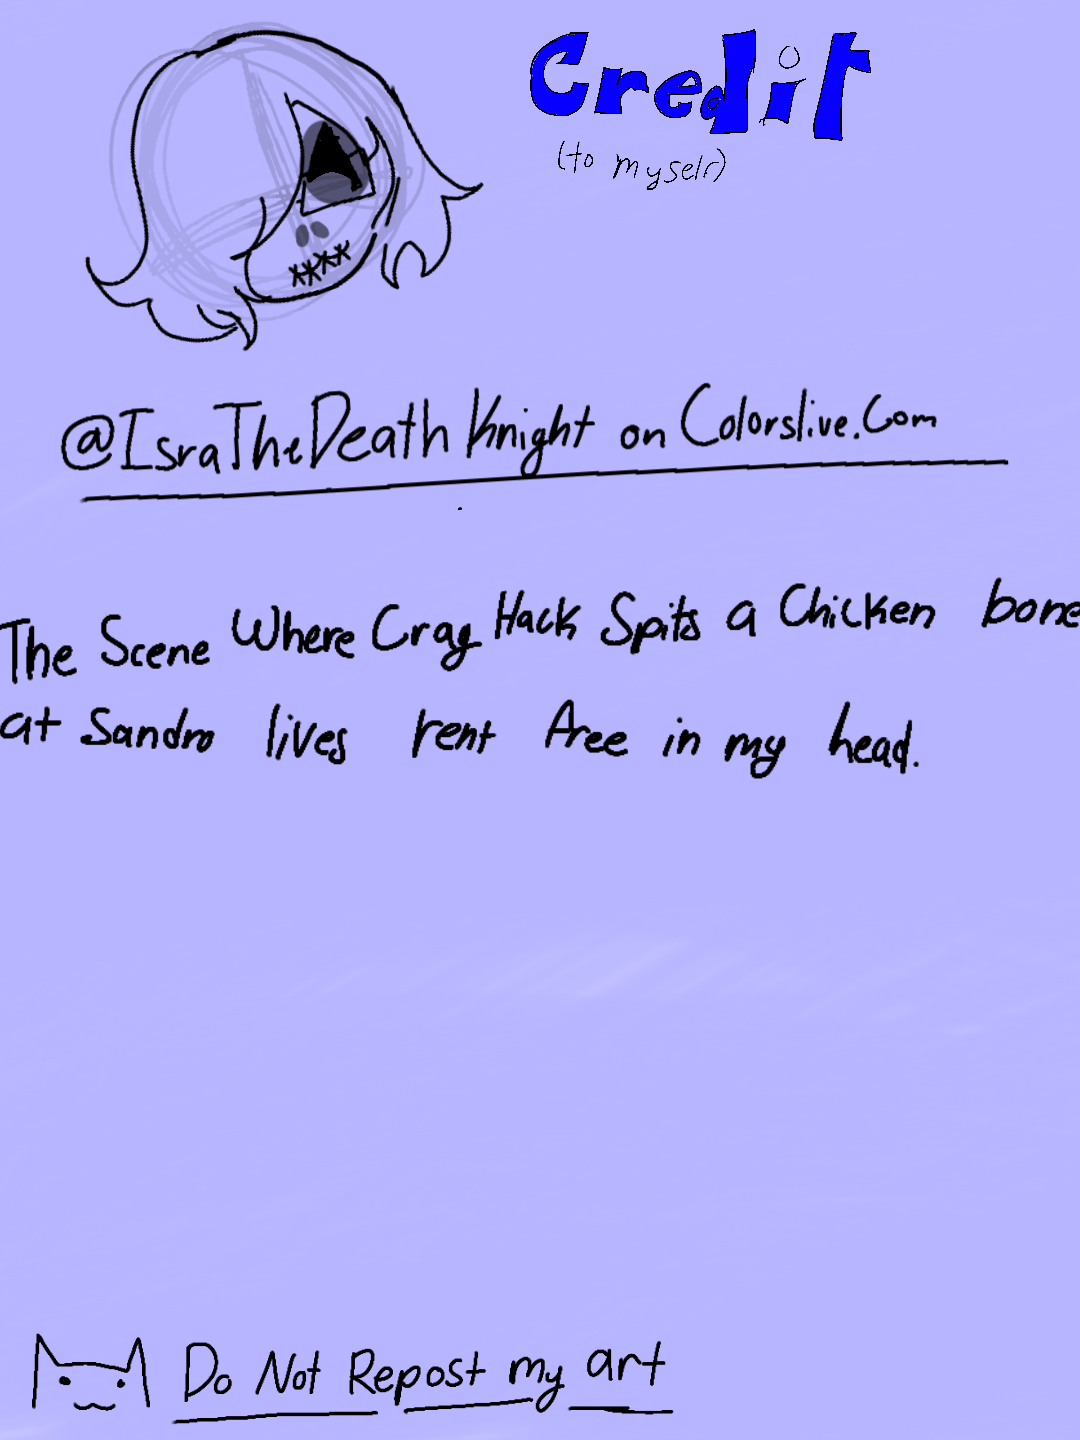 Credit
(to myself)
@IsraTheDeathKnight on Colorslive.Com
The Scene Where Crag Hack Spits a Chicken bone
at Sandro lives rent free in my head.
Do Not Repost my art